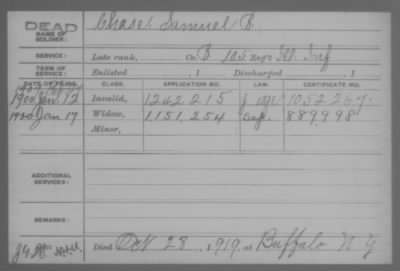 DEAD
NAME OF SOLDIER: Chase, Samuel B.
SERVICE: Late rank, Co. B 105 Reg't Ill. Inf
TERM OF SERVICE: Enlisted , 1 Discharged , 1
DATE OF FILING. CLASS. APPLICATION NO. LAW. CERTIFICATE NO.
1900 Jan 12 Invalid, 1242.215 1052.267.
1920 Jan 17 Widow, 1.151.254 889998
Minor,
ADDITIONAL SERVICES:
REMARKS:
Died Oct 28, 1919, at Buffalo N Y